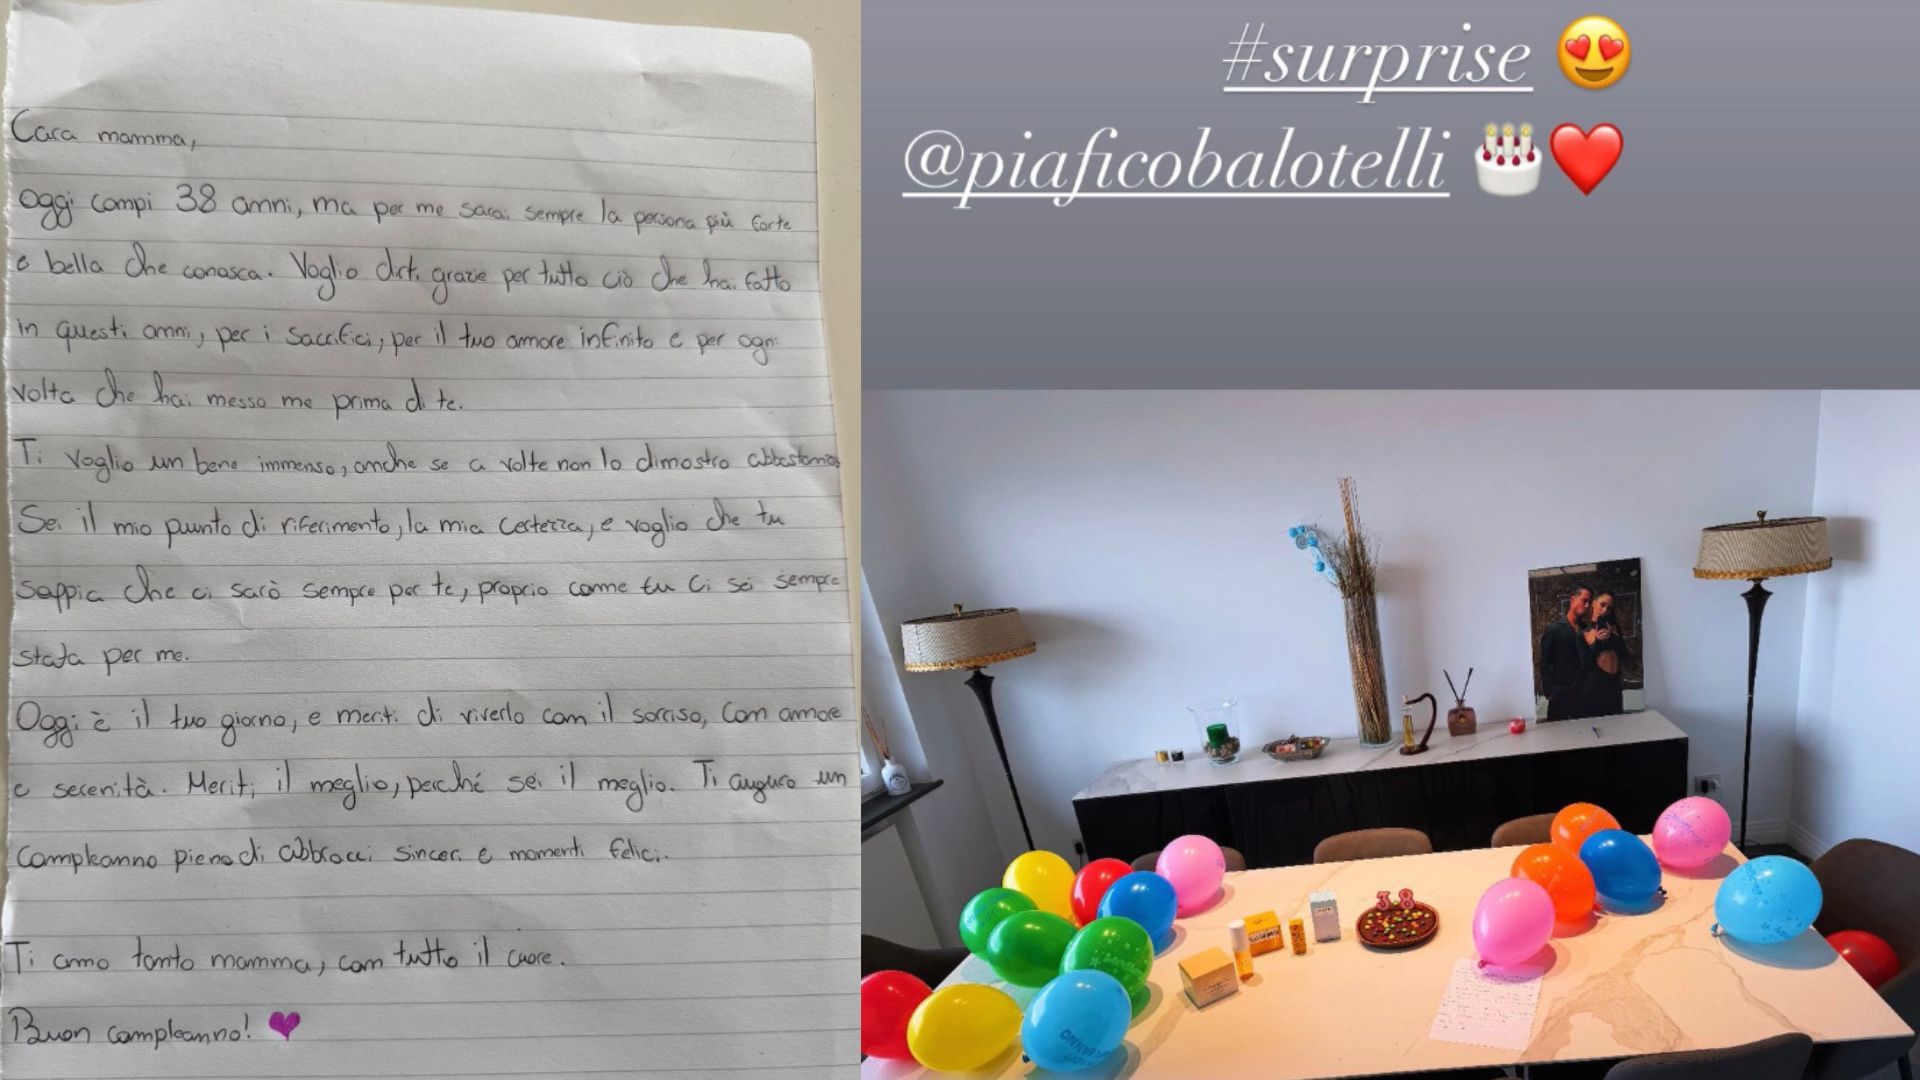 Cara mamma,
Oggi compi 38 anni, ma per me sarai sempre la persona più forte
e bella che conosca. Voglio dirti grazie per tutto ciò che hai fatto
in questi anni, per i sacrifici, per il tuo amore infinito e per ogni
volta che hai messo me prima di te.
Ti voglio un bene immenso, anche se a volte non lo dimostro abbastanza
Sei il mio punto di riferimento, la mia certezza, e voglio che tu
sappia che ci sarò sempre per te, proprio come tu ci sei sempre
stata per me.
Oggi è il tuo giorno, e meriti di viverlo con il sorriso, con amore
e serenità. Meriti il meglio, perché sei il meglio. Ti auguro un
Compleanno pieno di abbracci sinceri e momenti felici.
Ti amo tanto mamma, con tutto il cuore.
Buon compleanno!
#surprise
@piaficobalotelli
38